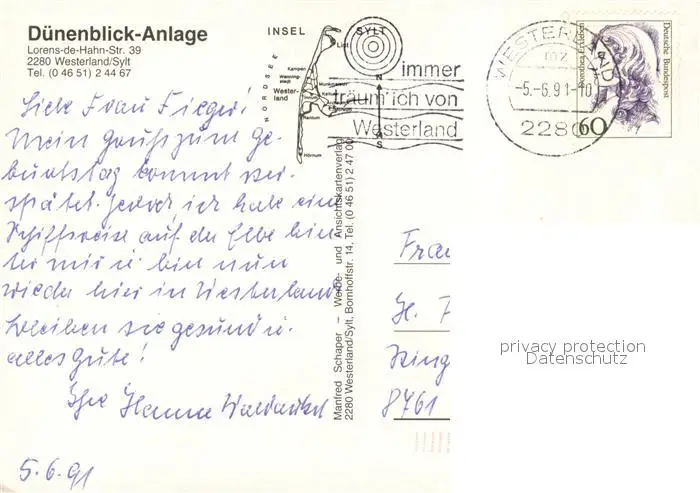 Dünenblick-Anlage
Lorens-de-Hahn-Str. 39
2280 Westerland/Sylt
Tel. (0 46 51) 2 44 67
INSEL SYLT
NORDSEE
List
Kampen
Wenning-
stedt
Wester-
land
Munkmarsch
Keitum
Rantum
Hörnum
N
S
immer
träum' ich von
Westerland
WESTERLAND
mz
-5.-6.91-10
2280
Deutsche Bundespost
60
Liebe Frau Fieger!
Mein Gruß zum Ge-
burtstag kommt ver-
spätet. Jedoch ich habe eine
Schiffsreise auf der Elbe hin-
ter mir u. bin nun
wieder hier in Westerland.
Bleiben sie gesund u.
alles Gute!
Ihre Hanna
5.6.91
Manfred Schaper – Werbe- und Ansichtskartenverlag
2280 Westerland/Sylt, Bomhoffstr. 14, Tel. (0 46 51) 2 47 00
Frau
H. F
Ring
8761
privacy protection
Datenschutz